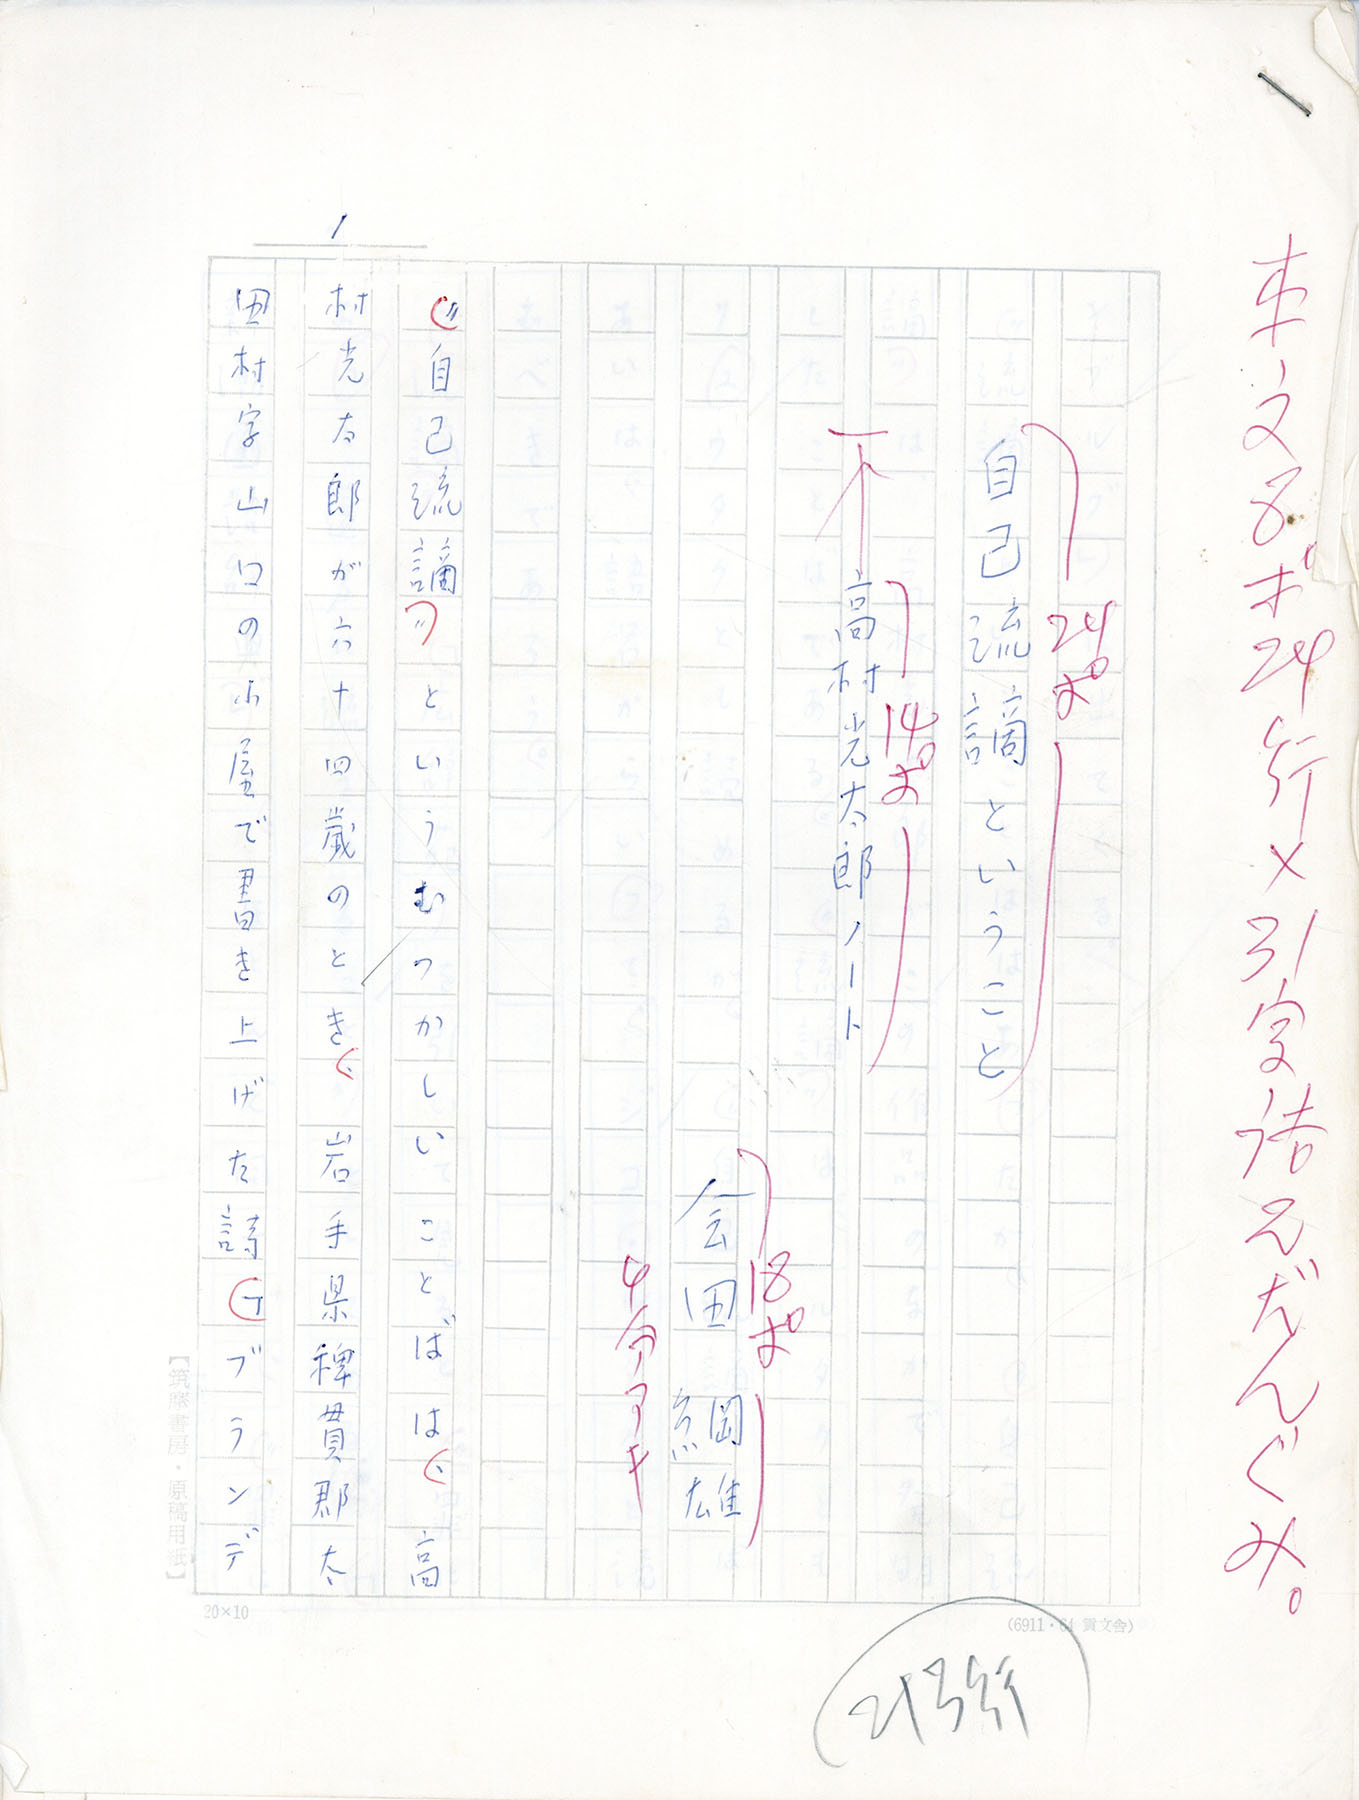 本文8ポ24行×31字詰2だんぐみ。
自己流謫ということ
24ポ
高村光太郎ノート
14ポ
会田綱雄
18ポ
4分アキ
〝自己流謫〟というむつかしいことばは、高
村光太郎が六十四歳のとき、岩手県稗貫郡太
田村字山口の小屋で書き上げた詩「ブランデ
1
【筑摩書房・原稿用紙】
20×10
(6911・64 賀文舎)
213行